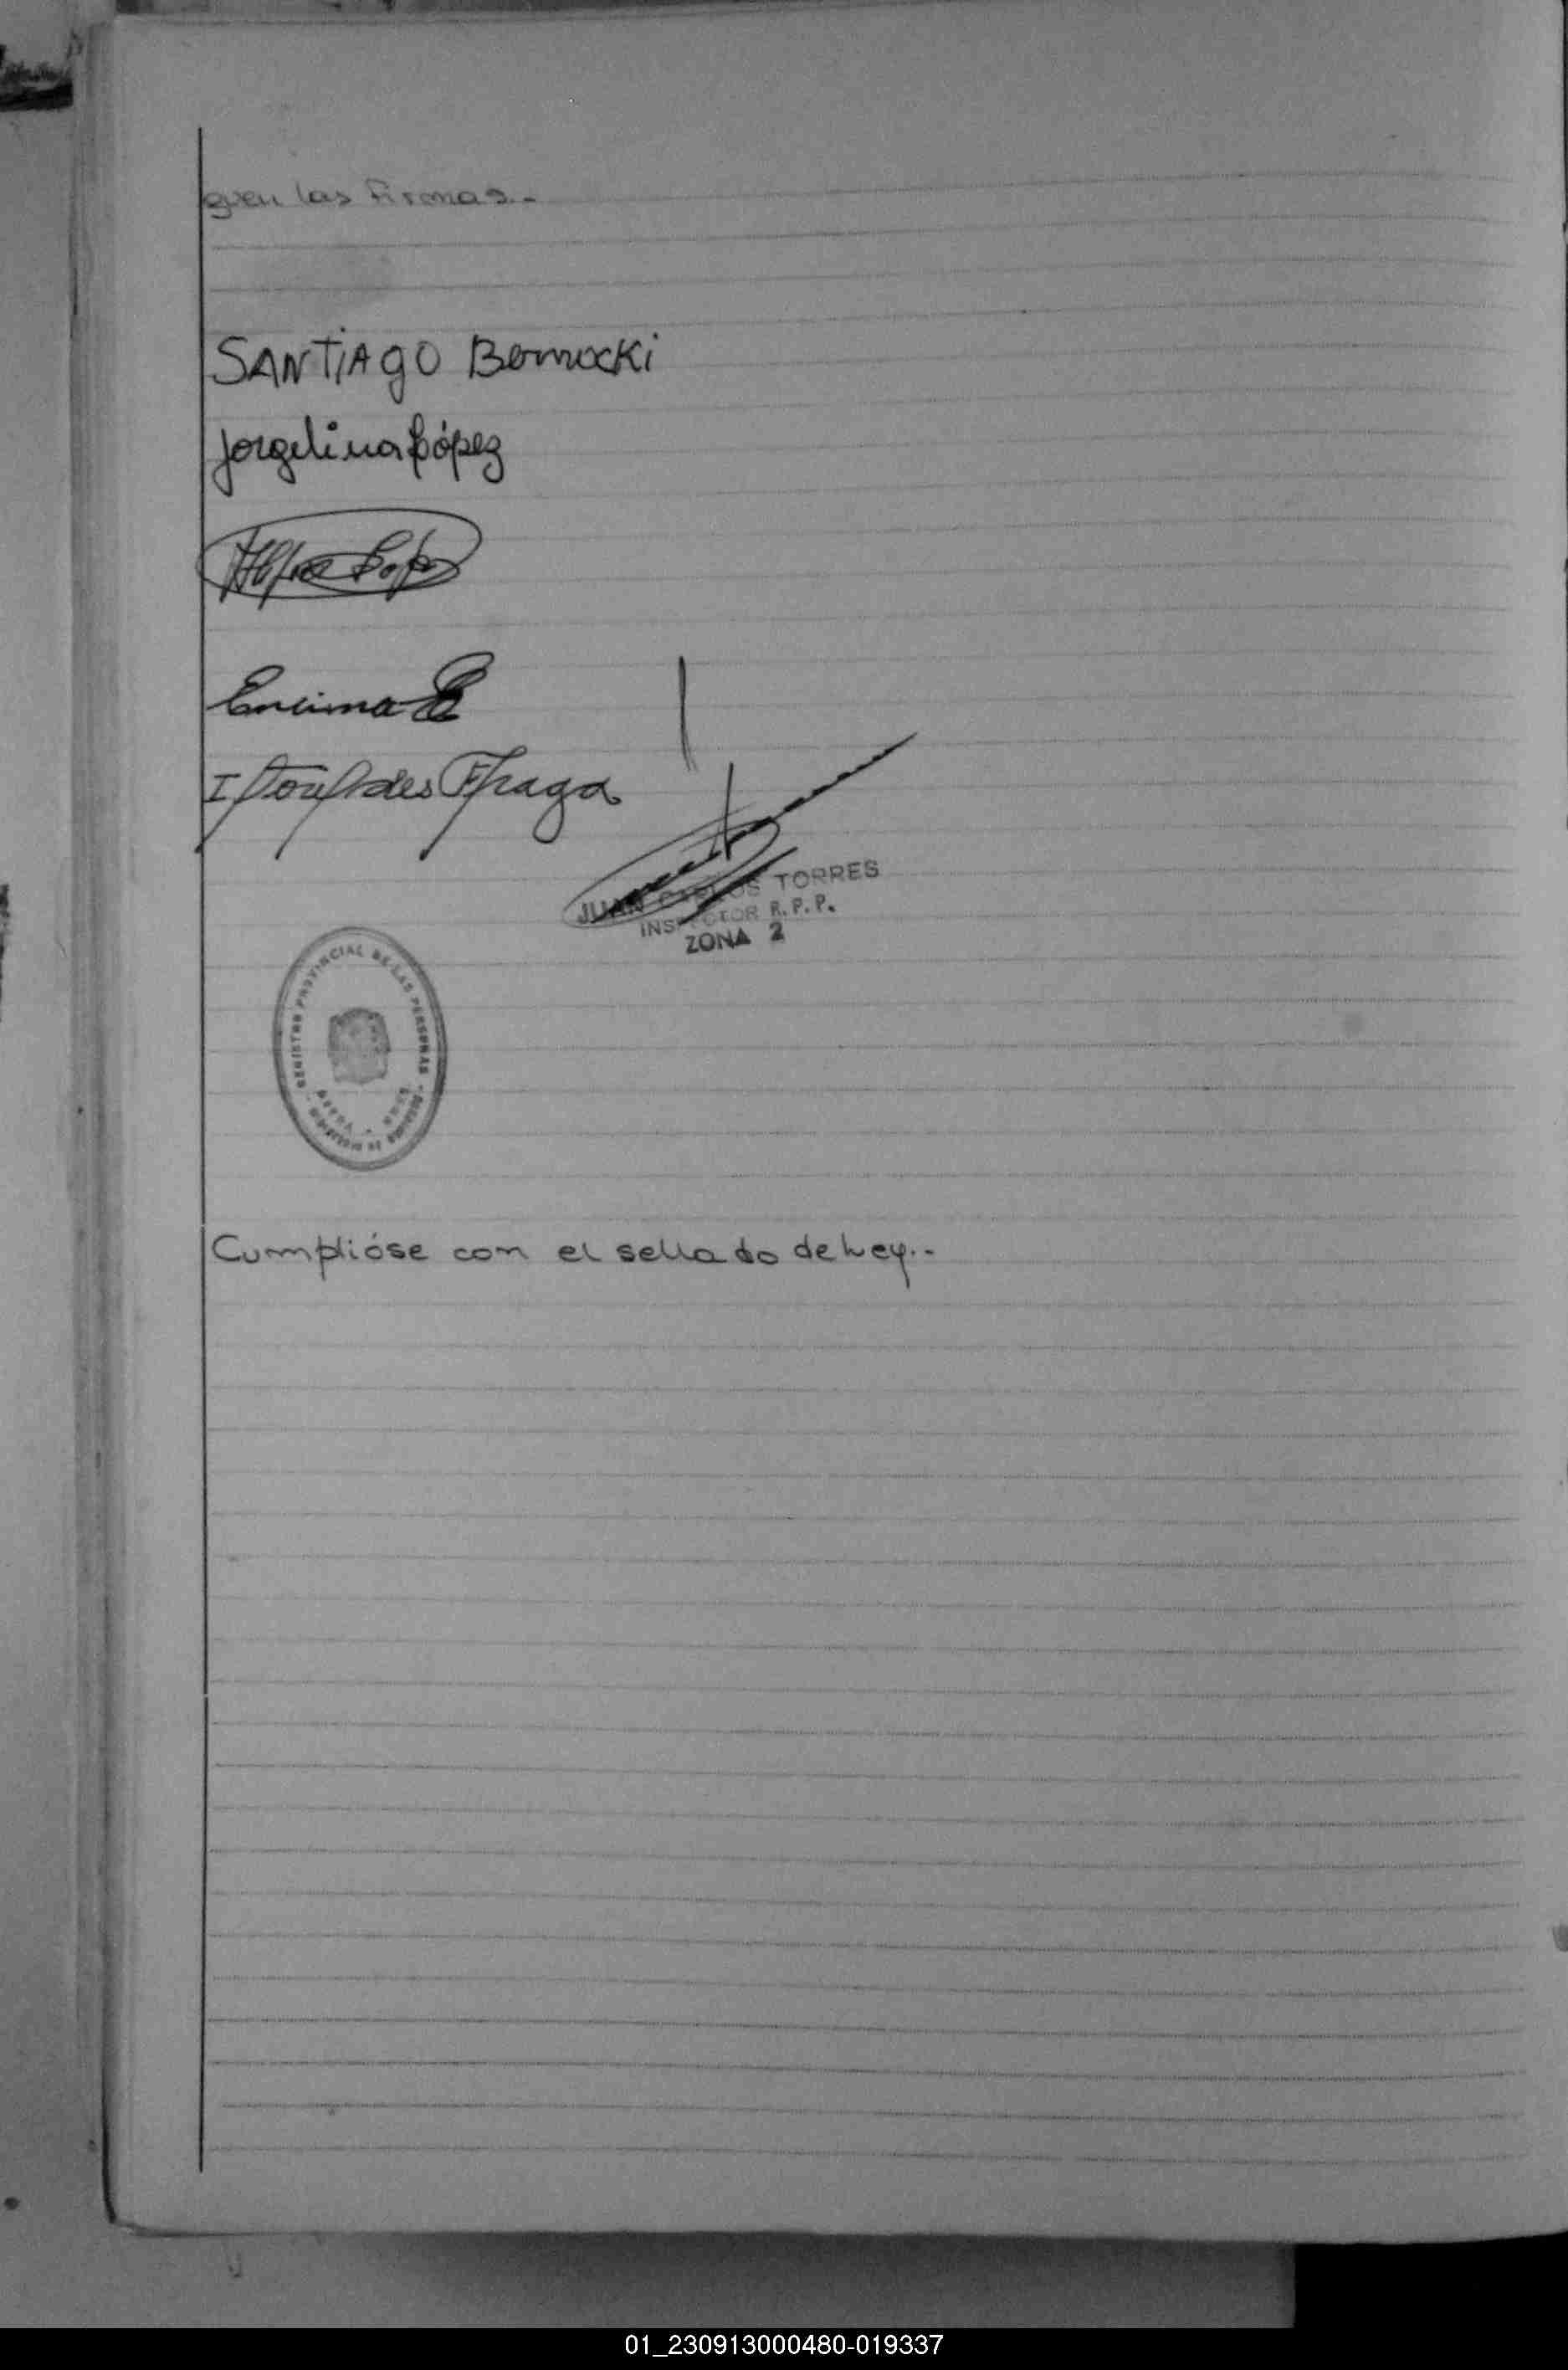 guen las firmas.-
SANTIAGO
Jorgelina López
Encima
Fraga
JUAN CARLOS TORRES
INSPECTOR R.P.P.
ZONA 2
REGISTRO PROVINCIAL DE LAS PERSONAS
Cumplióse con el sellado de Ley.-
01_230913000480-019337